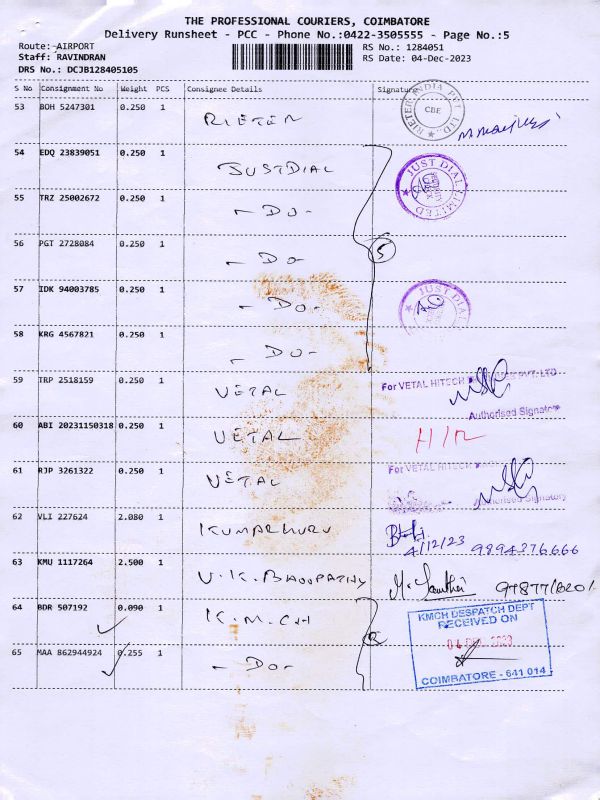 THE PROFESSIONAL COURIERS, COIMBATORE
Delivery Runsheet - PCC - Phone No.:0422-3505555 - Page No.:5
Route: AIRPORT
RS No.: 1284051
Staff: RAVINDRAN
RS Date: 04-Dec-2023
DRS No.: DCJB128405105
S No Consignment No Weight PCS Consignee Details Signature
53 BOH 5247301 0.250 1 RIETER
RIETER INDIA PVT. LTD. CBE
54 EDQ 23839051 0.250 1 JUSTDIAL
JUST DIAL LIMITED
55 TRZ 25002672 0.250 1 - DO -
56 PGT 2728084 0.250 1 - DO - 5
57 IDK 94003785 0.250 1 - DO -
JUST DIAL
58 KRG 4567821 0.250 1 - DO -
59 TRP 2518159 0.250 1 VETAL
For VETAL HITECH PVT. LTD
Authorised Signatory
60 ABI 20231150318 0.250 1 VETAL H/R
61 RJP 3261322 0.250 1 VETAL
For VETAL HITECH
Authorised Signatory
62 VLI 227624 2.080 1 KUMARGURU
4/12/23 9894376666
63 KMU 1117264 2.500 1 V.K. BHOOPATHY
64 BDR 507192 0.090 1 K.M.CH
KMCH DESPATCH DEPT
RECEIVED ON
65 MAA 862944924 0.255 1 - DO -
COIMBATORE - 641 014